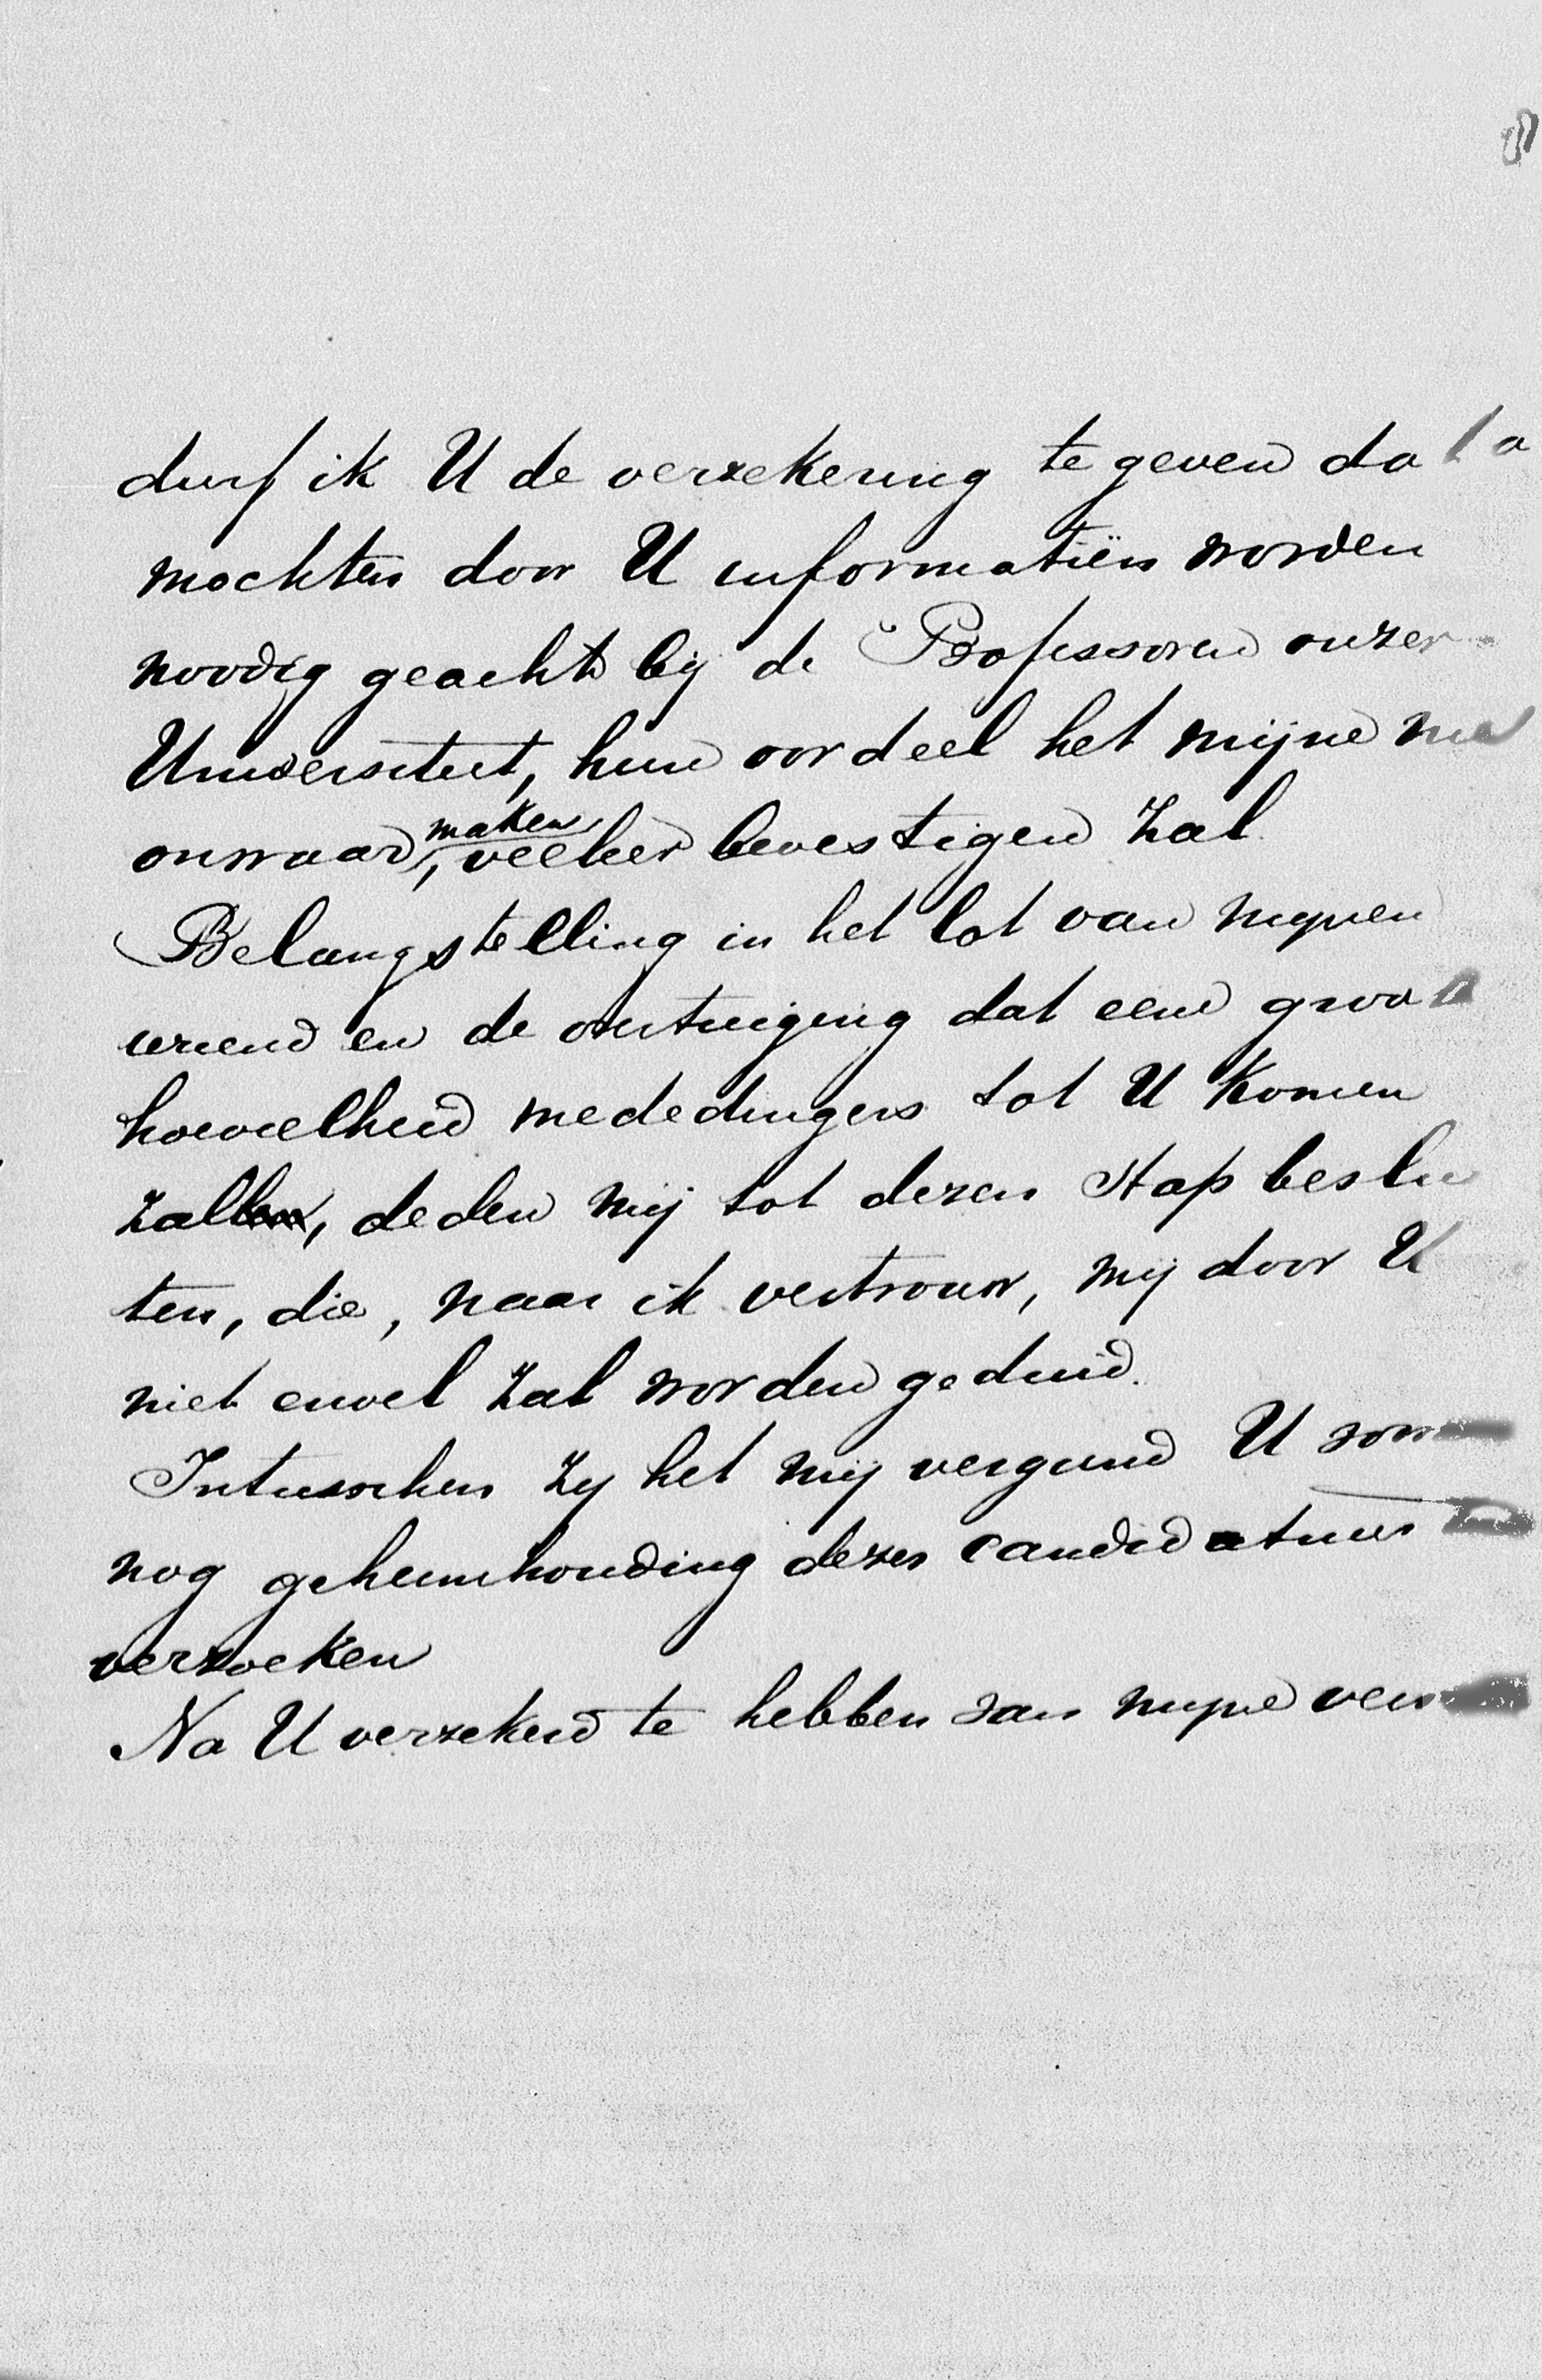 durf ik U de verzekering te geven dat
mochten door U informatiën worden
noodig geacht bij de Professoren onzer
Universiteit, hun oordeel het mijne
maken,
onwaar, veeleer bevestigen zal
Belangstelling in het lot van mijnen
vriend en de overtuiging dat eene groo
hoeveelheid mededingers tot U komen
zal, deden mij tot dezen stap beslu
ten, die, naar ik vertrouw, mij door U
niet euvel zal worden geduid.
Intusschen zij het mij vergund U
nog geheimhouding dezer candidatuur
verzoeken
Na U verzekerd te hebben van mijne